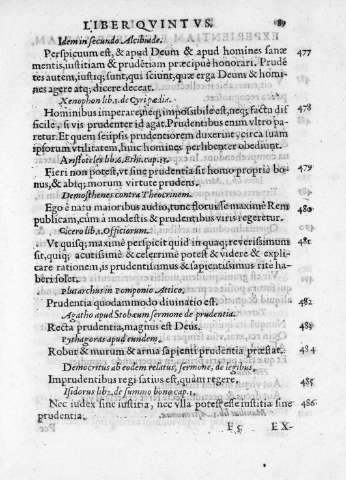 LIBER QVINTVS. 89
Idem in secundo Alcibiade.
Perspicuum est, & apud Deum & apud homines sanæ 477
mentis, iustitiam & prudẽtiam præcipuè honorari. Prudẽ
tes autem, iustiq; sunt, qui sciunt, quæ erga Deum & homi
nes agere atq; dicere deceat.
Xenophon lib. 1. de Cyripædia.
Hominibus imperare, neq; impossibile est, neq; factu dif 478
ficile, si vis prudenter id agat. Prudentibus enim vltro pa-
retur. Et quem seipsis prudentiorem duxerint, circa suam
ipsorum vtilitatem, huic homines perlibenter obediunt.
Aristoteles lib. 6. Ethi. cap. 13.
Fieri non potest, vt sine prudentia sit homo propriè bo- 479
nus, & absq; morum virtute prudens.
Demosthenes contra Theocrinem.
Ego è natu maioribus audio, tunc floruisse maximè Rem 480
publicam, cùm à modestis & prudentibus viris regeretur.
Cicero lib. 1. Officiorum.
Vt quisq; maximè perspicit quid in quaq; re verissimum 481
sit, quiq; acutissimè & celerrimè potest & videre & expli-
care rationem, is prudentissimus & sapientissimus ritè ha-
beri solet.
Plutarchus in Pomponio Attico.
Prudentia quodammodo diuinatio est. 482
Agatho apud Stobæum sermone de prudentia.
Recta prudentia, magnus est Deus. 483
Pythagoras apud eundem.
Robur & murum & arma sapienti prudentia præstat. 484
Democritus ab eodem relatus, sermone, de legibus.
Imprudentibus regi satius est, quàm regere. 485
Isidorus lib. 2. de summo bono cap. 1.
Nec iudex sine iustitia, nec vlla potest esse iustitia sine 486
prudentia.
F 5 EX-